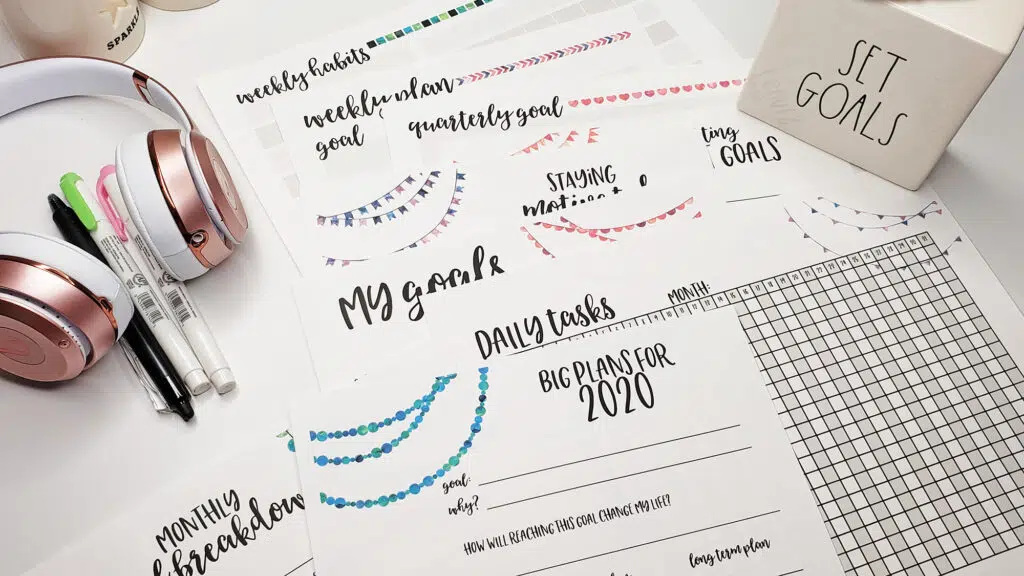 SPARKLE
weekly habits
weekly plan
goal
quarterly goal
SET
GOALS
GOALS
STAYING
My goals
DAILY tasks
MONTH:
BIG PLANS FOR
2020
goal:
why?
HOW WILL REACHING THIS GOAL CHANGE MY LIFE?
long term plan
MONTHLY
breakdown